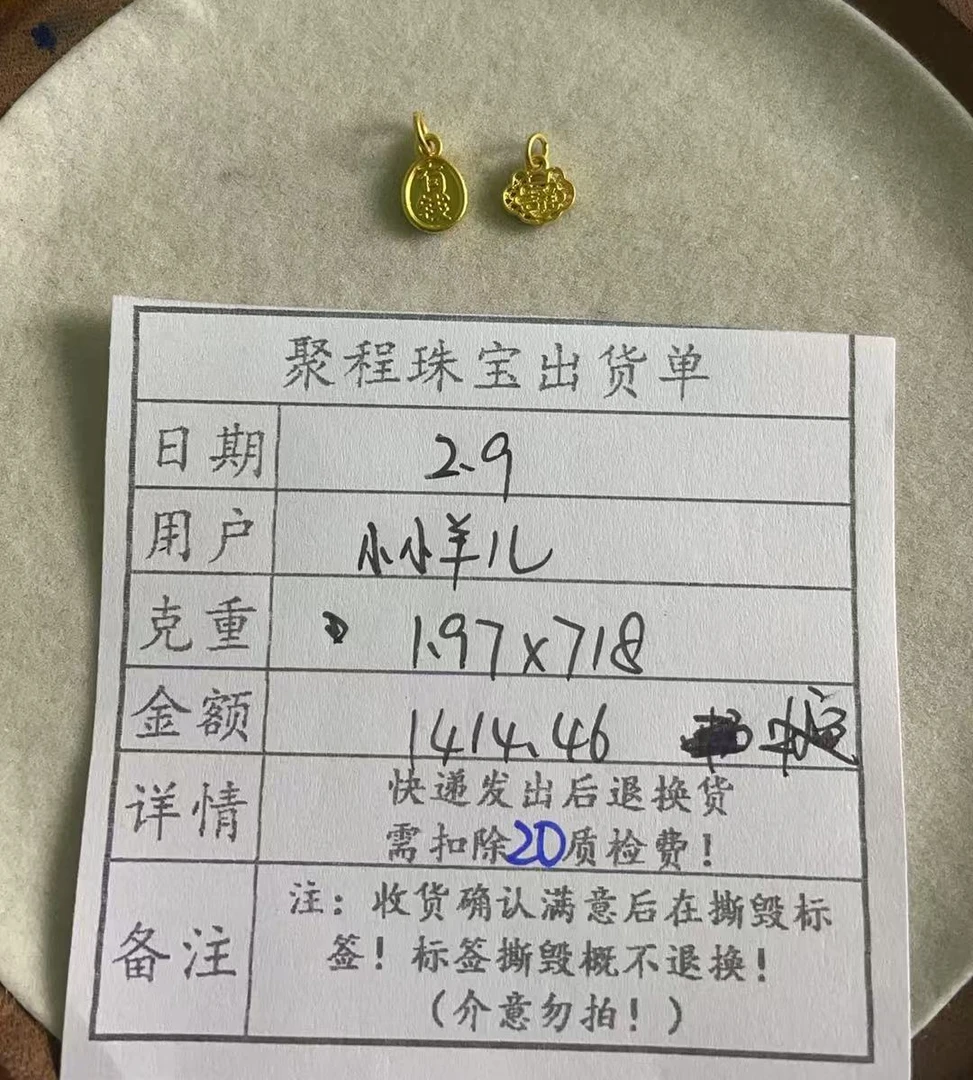 有钱
聚程珠宝出货单
日期 2.9
用户 小小羊儿
克重 1.97x718
金额 1414.46
详情 快递发出后退换货
需扣除20质检费！
备注 注：收货确认满意后在撕毁标
签！标签撕毁概不退换！
（介意勿拍！）